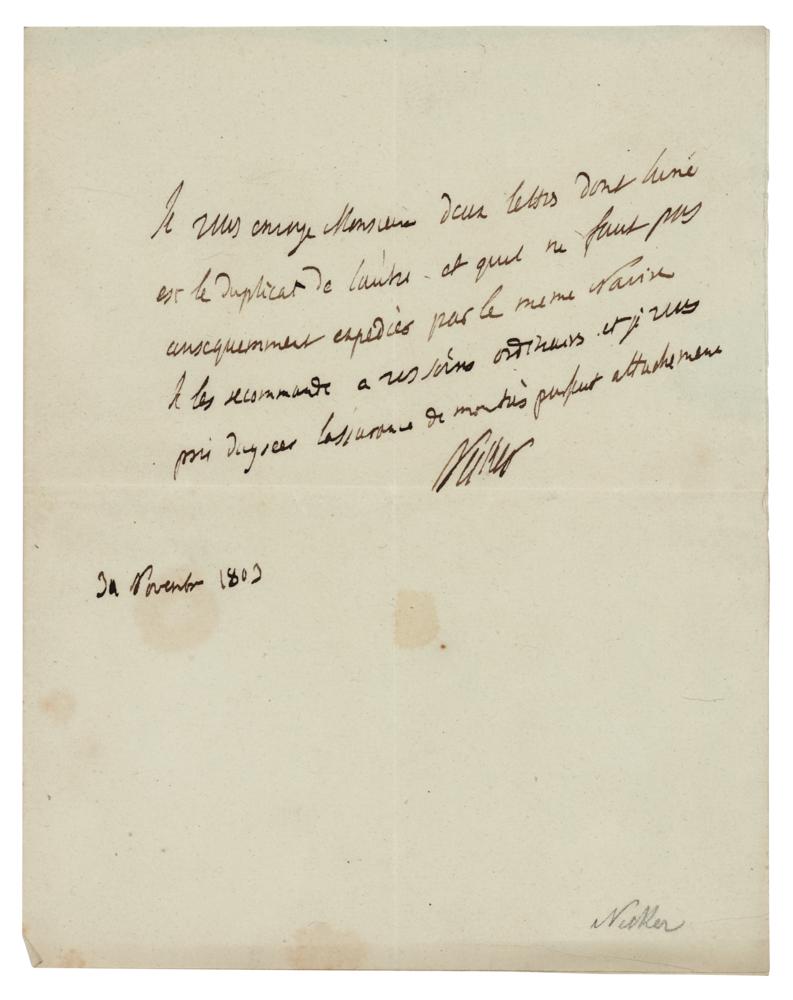 Je vous envoye Monsieur deux lettres dont lune
est le duplicat de lautre et quil ne faut pas
consequemment expedier par le meme navire
Je les recommande a vos soins ordinaires et je vous
prie dagreer lassurance de mon très parfait attachement
Necker
30 Novembre 1803
Necker